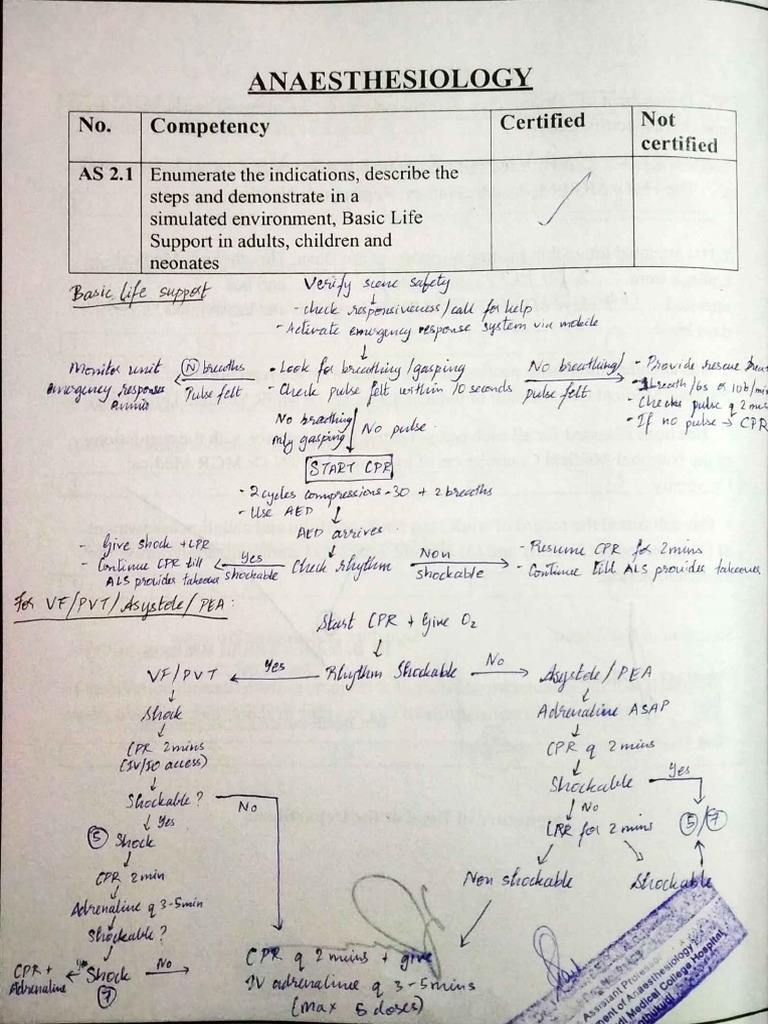 ANAESTHESIOLOGY
No. Competency Certified Not certified
AS 2.1 Enumerate the indications, describe the
steps and demonstrate in a
simulated environment, Basic Life
Support in adults, children and
neonates
Basic life support
Verify scene safety
- check responsiveness/call for help
- Activate emergency response system via mobile
Monitor until
emergency response
(N) breaths
Pulse felt
- Look for breathing/gasping
- Check pulse felt within 10 seconds
No breathing/
pulse felt
- Provide rescue
- 1breath/6s or 10b/min
- Checks pulse q 2 min
- If no pulse → CPR
No breathing
only gasping
No pulse
START CPR
- 2 cycles compressions - 30 + 2 breaths
- Use AED
AED arrives
Check rhythm
Yes
shockable
- Give shock + CPR
- Continue CPR till
ALS provides takeover
Non
shockable
- Resume CPR for 2 mins
- Continue till ALS provides takeover
For VF/PVT/Asystole/PEA:
Start CPR + Give O2
VF/PVT ← Yes Rhythm Shockable No → Asystole/PEA
Shock
CPR 2mins
(IV/IO access)
Shockable?
No
Yes
(5) Shock
CPR 2 min
Adrenaline q 3-5min
Shockable?
CPR +
Adrenaline
Yes
Shock
(7)
No →
Adrenaline ASAP
CPR q 2 mins
Shockable
Yes
(5)/(7)
No
CPR for 2 mins
Non shockable
Shockable
CPR q 2 mins + give
IV adrenaline q 3-5mins
(max 5 doses)
Assistant Professor
of Anaesthesiology
Medical College Hospital,